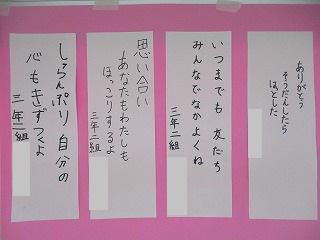 ありがとう
そうだんしたら
ほっとした
いつまでも 友だち
みんなでなかよくね
三年二組
思い合い
あなたもわたしも
ほっこりするよ
三年二組
しらんぷり 自分の
心もきずつくよ
三年二組